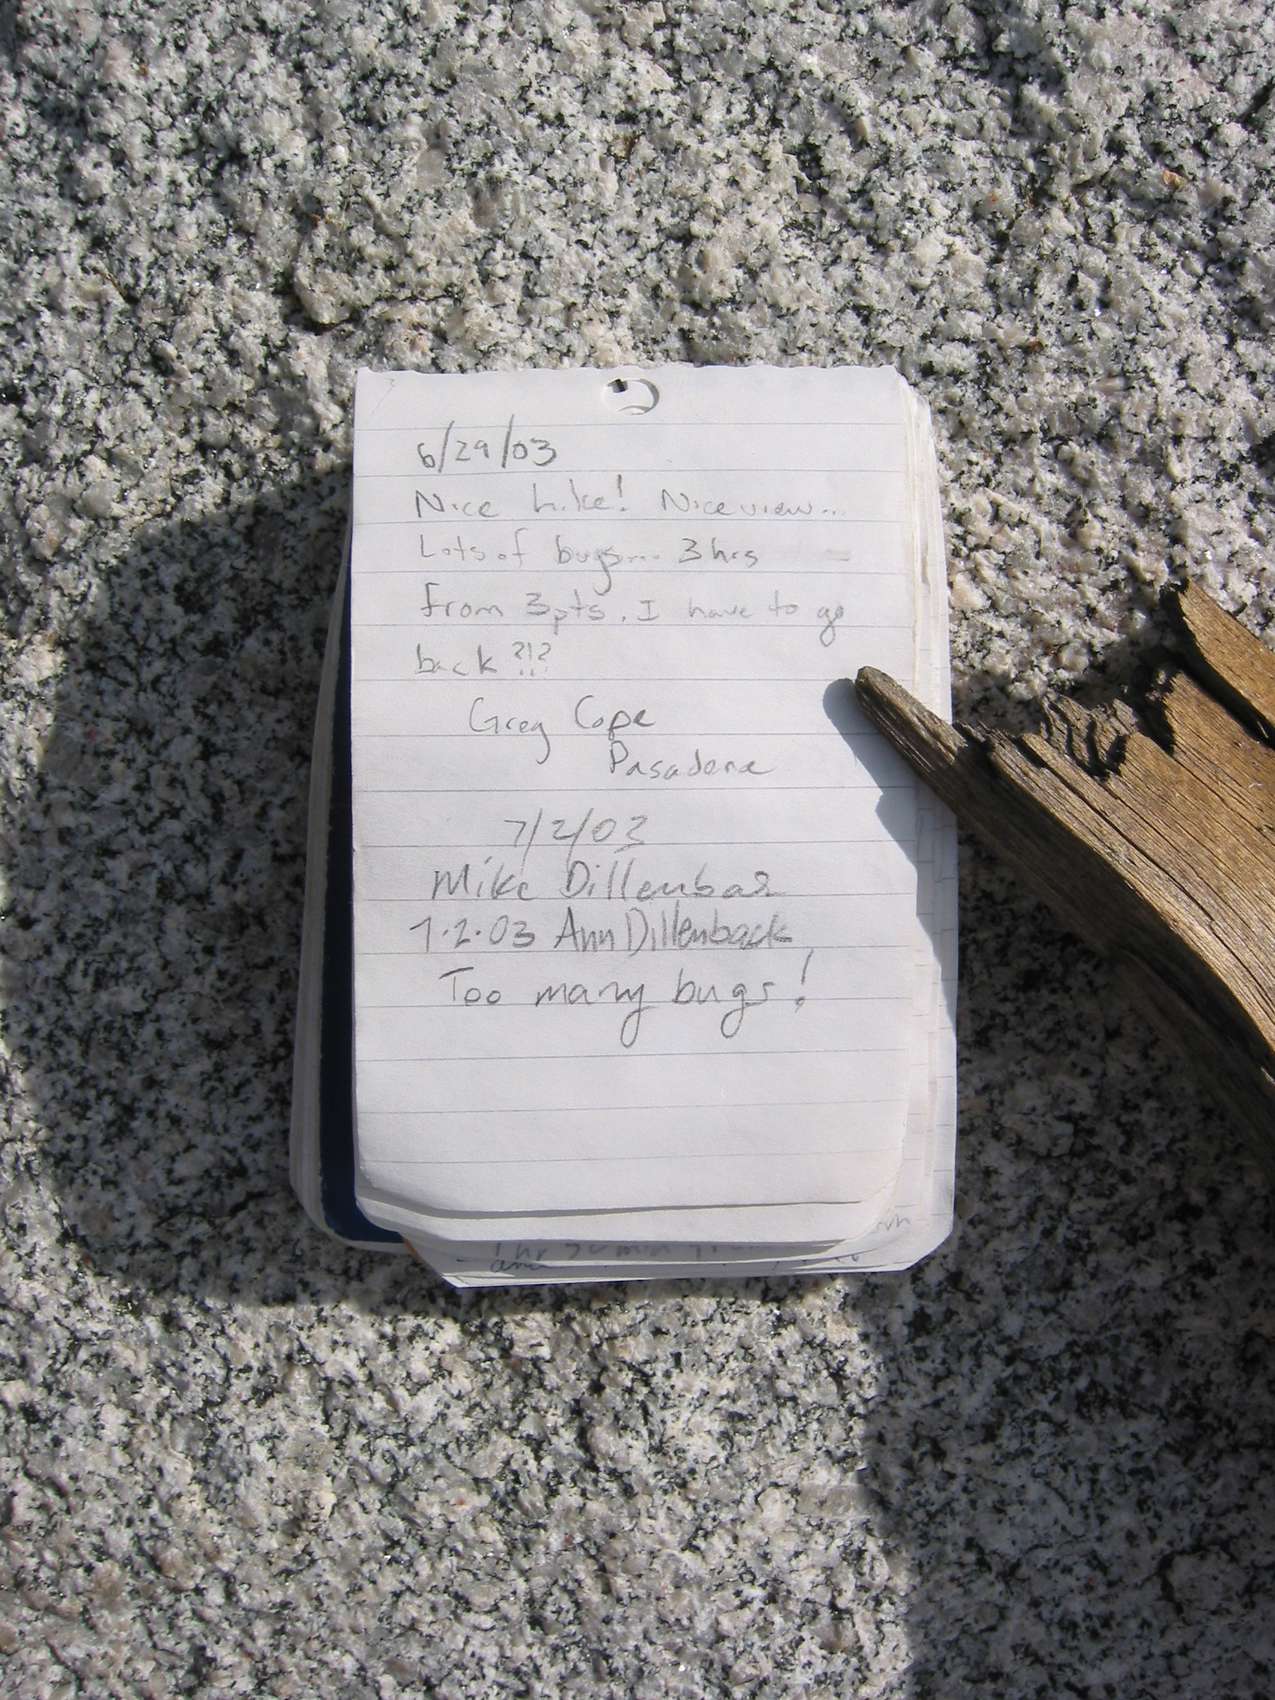 6/29/03
Nice hike! Nice view...
Lots of bugs... 3 hrs
from 3pts. I have to go
back ?!?
Greg Cope
Pasadena
7/2/03
Mike Dillenbac
7.2.03 Ann Dillenback
Too many bugs!
1 hr